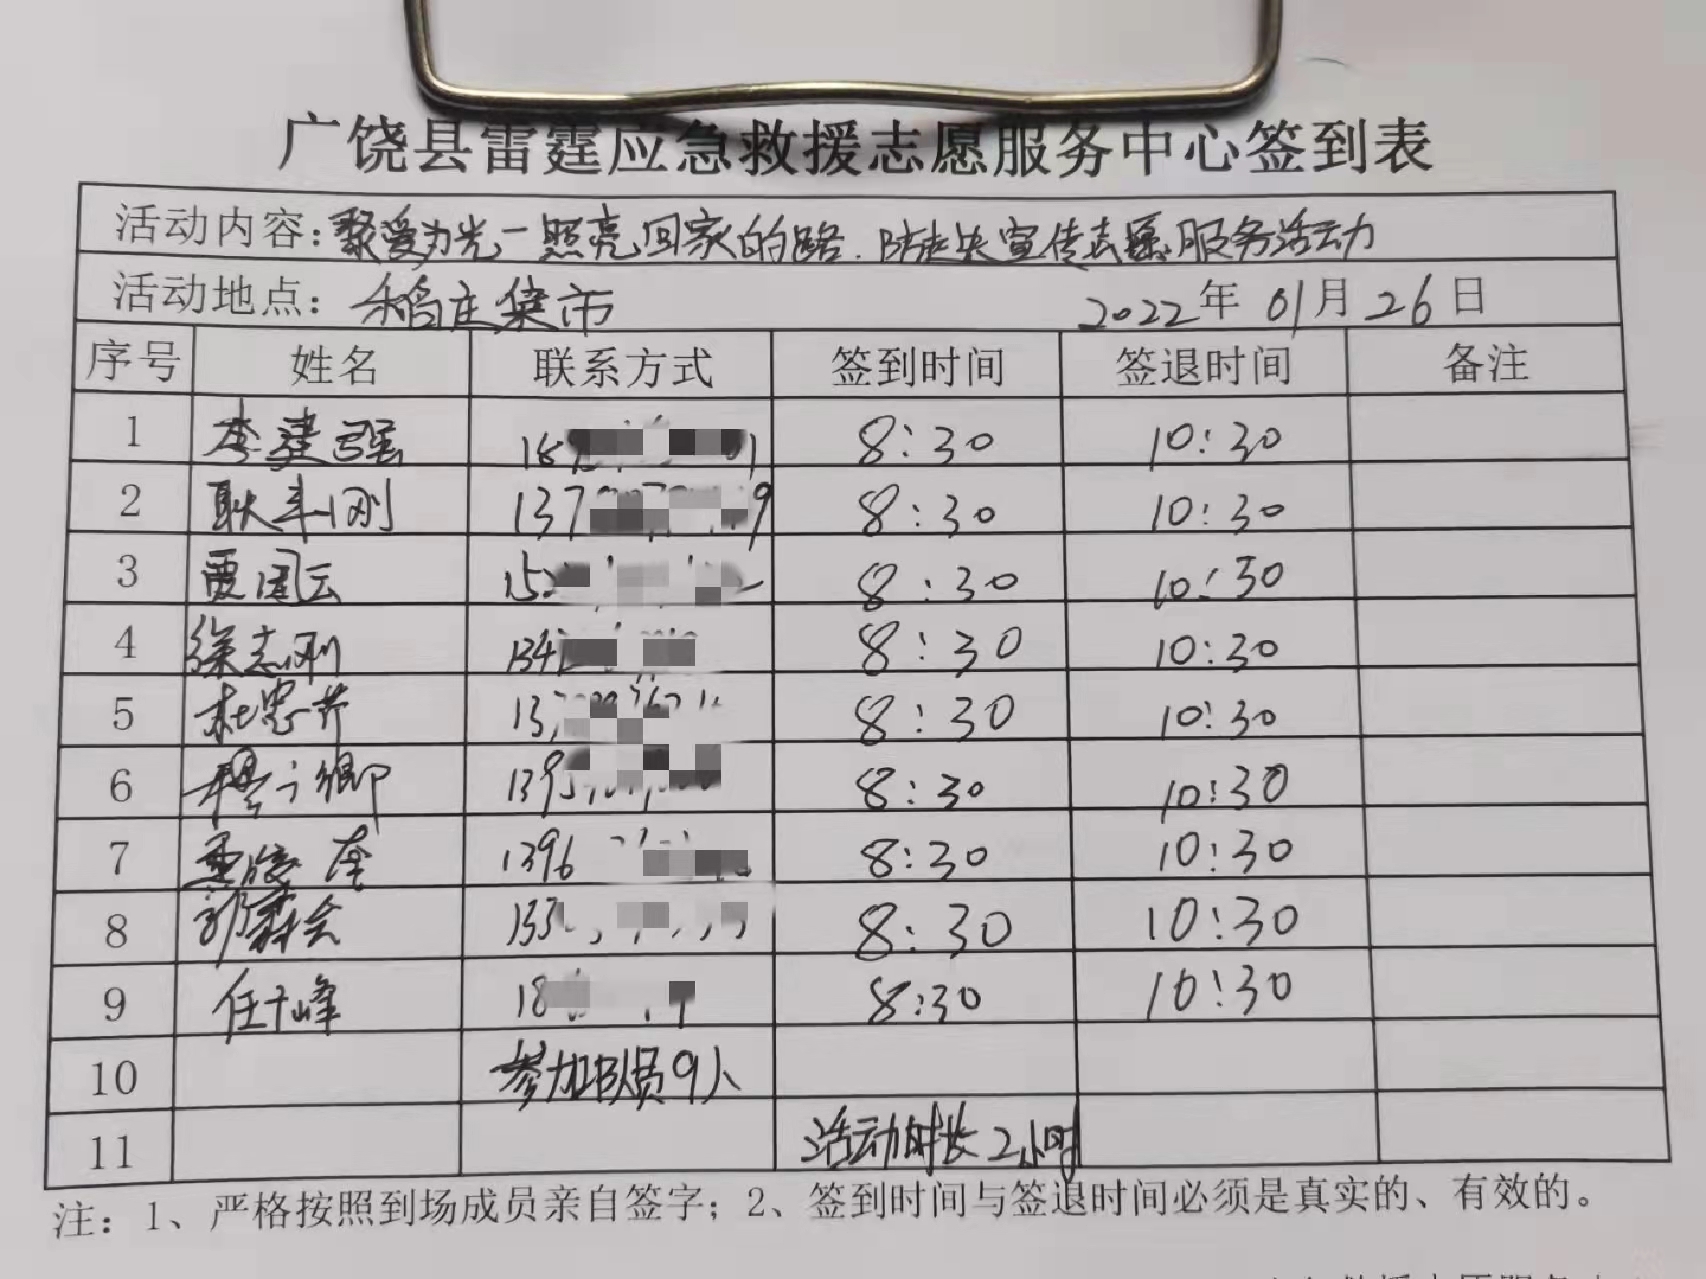 广饶县雷霆应急救援志愿服务中心签到表
活动内容：聚爱为光一照亮回家的路.防走失宣传志愿服务活动
活动地点：稻庄集市 2022年01月26日
序号 姓名 联系方式 签到时间 签退时间 备注
1 李建强 18 1 8:30 10:30
2 耿丰刚 137 9 8:30 10:30
3 贾国云 15 8:30 10:30
4 徐志刚 134 8:30 10:30
5 杜忠芹 13 8:30 10:30
6 139 8:30 10:30
7 1396 8:30 10:30
8 133 8:30 10:30
9 任峰 18 8:30 10:30
10 参加队员9人
11 活动时长2小时
注：1、严格按照到场成员亲自签字；2、签到时间与签退时间必须是真实的、有效的。